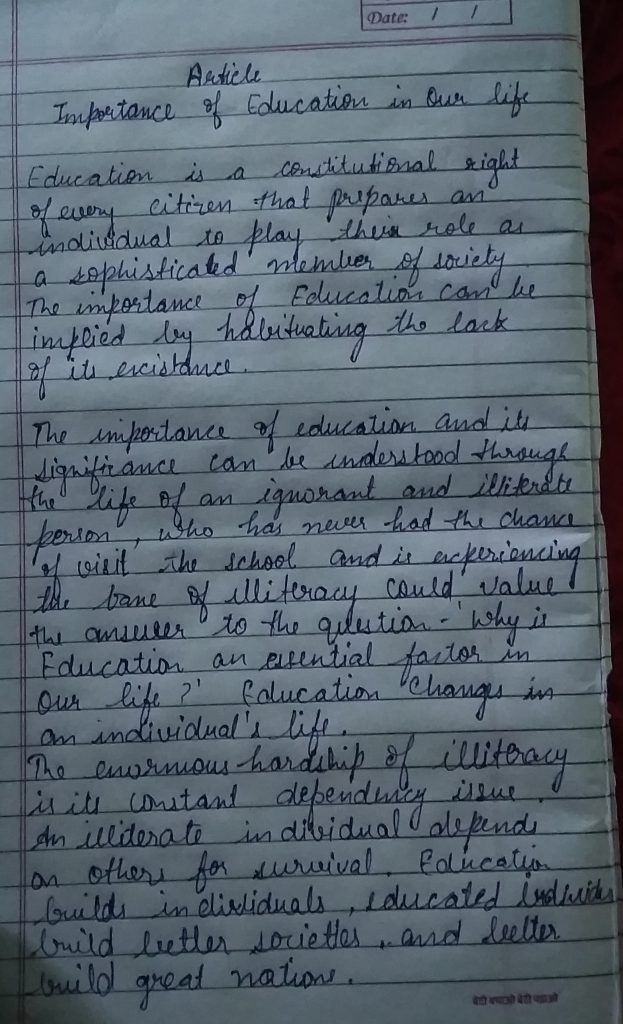 Date: / /
Article
Importance of Education in Our life
Education is a constitutional right
of every citizen that prepares an
individual to play their role as
a sophisticated member of society
The importance of Education can be
implied by habituating the lack
of its existance.
The importance of education and its
significance can be understood through
the life of an ignorant and illiterate
person, who has never had the chance
of visit the school and is experiencing
the bane of illiteracy could value
the answer to the question - 'Why is
Education an essential factor in
our life ?' Education Changes in
an individual's life.
The enormous hardship of illiteracy
is its constant dependency issue.
An illiderate individual depends
on others for survival. Education
builds individuals, educated Individuals
build better societies, and better
build great nations.
बेटी बचाओ बेटी पढ़ाओ